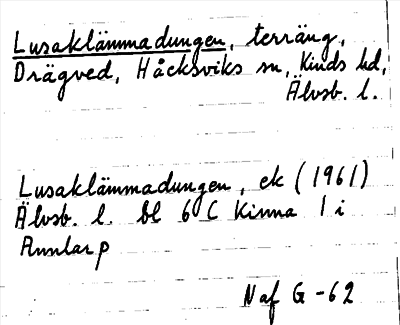 Lusaklämmadungen, terräng,
Drägved, Håcksviks sn, Kinds hd,
Älvsb. l.
Lusaklämmadungen, ek (1961)
Älvsb. l. bl 6 C Kinna 1 i
Annlarp
Naf G-62